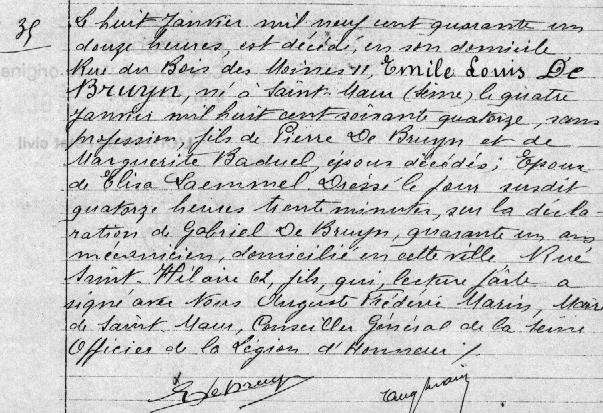 35
Le huit Janvier mil neuf cent quarante un
douze heures, est décédé, en son domicile
Rue du Bois des Moines 11, Emile Louis De
Bruyn, né à Saint-Maur (Seine) le quatre
Janvier mil huit cent soixante quatorze, sans
profession, fils de Pierre De Bruyn et de
Marguerite Baduel, époux décédés; Epoux
de Elisa Laemmel. Dressé le jour susdit
quatorze heures trente minutes, sur la décla-
ration de Gabriel De Bruyn, quarante un ans
mécanicien, domicilié en cette ville Rue
Saint-Hilaire 62, fils, qui, lecture faite a
signé avec Nous Auguste Frédéric Marin, Maire
de Saint-Maur, Conseiller Général de la Seine
Officier de la Légion d'Honneur ./.
G De Bruyn
Aug Marin